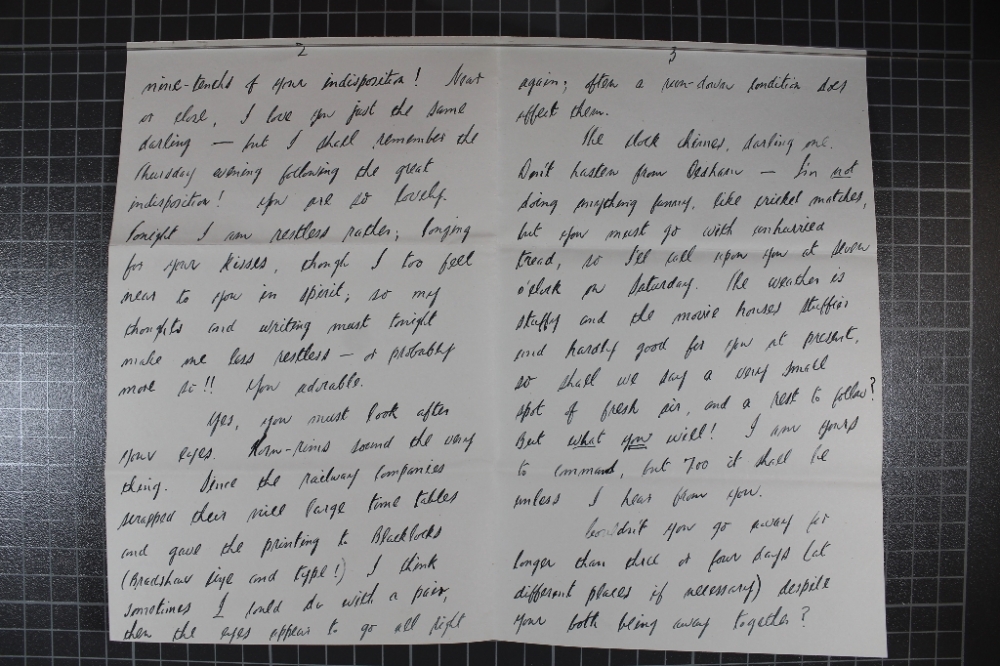 2
nine-tenths of your indisposition! Near
or else, I love you just the same
darling — but I shall remember the
Thursday evening following the great
indisposition! You are so lovely.
Tonight I am restless rather; longing
for your kisses, though I too feel
near to you in spirit; so my
thoughts and writing must tonight
make me less restless — or probably
more so!! You adorable.
Yes, you must look after
your eyes. Horn-rims sound the very
thing. Since the railway companies
scrapped their nice large time tables
and gave the printing to Blacklocks
(Bradshaw size and type!) I think
sometimes I could do with a pair,
then the eyes appear to go all right
3
again; often a run-down condition does
affect them.
The clock chimes, darling one.
Don't hasten from — I'm not
doing anything funny, like cricket matches,
but you must go with unhurried
tread, so I'll call upon you at seven
o'clock on Saturday. The weather is
stuffy and the movie houses stuffier
and hardly good for you at present,
so shall we say a very small
spot of fresh air, and a rest to follow?
But what you will! I am yours
to command, but 7oo it shall be
unless I hear from you.
Couldn't you go away for
longer than three or four days (at
different places if necessary) despite
your both being away together?